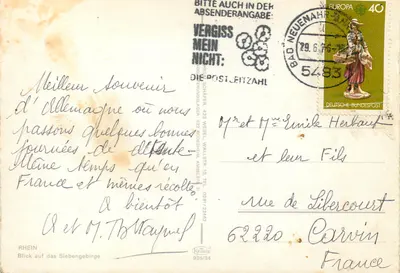 BITTE AUCH IN DER
ABSENDERANGABE:
VERGISS
MEIN
NICHT:
DIE POSTLEITZAHL
BAD NEUENAHR-
29.6.76
5483
EUROPA
40
DEUTSCHE BUNDESPOST
Meilleur souvenir
d'Allemagne où nous
passons quelques bonnes
journées de détente
Même temps qu'en
France et mêmes récoltes
A bientôt
et M.
Mr et Mme Emile
et leur Fils
rue de Libercourt
62220 Carvin
France
RHEIN
Blick auf das Siebengebirge